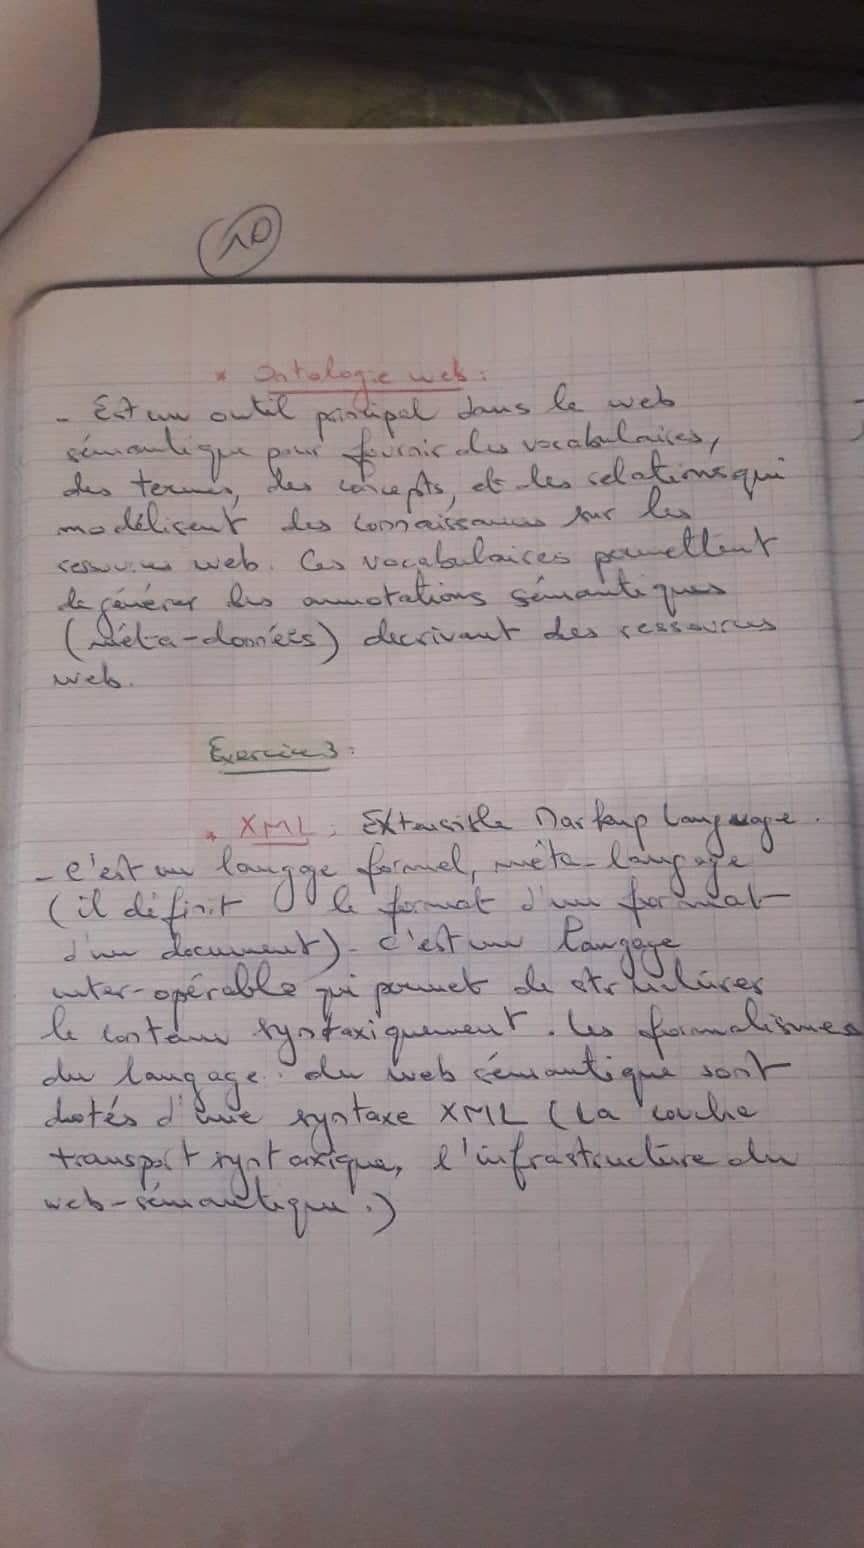 10
* Ontologie web :
- Est un outil principal dans le web
sémantique pour fournir des vocabulaires,
des termes, des concepts, et les relations qui
modélisent des connaissances sur les
ressources web. Ces vocabulaires permettent
de générer les annotations sémantiques
(Méta-données) decrivant des ressources
web.
Exercice 3 :
* XML : Extensible Markup Language.
- C'est un langge formel, méta-langage
(il définit le format d'un format
d'un document). C'est un langage
inter-opérable qui permet de structurer
le contenu syntaxiquement. Les formalismes
du langage du web sémantique sont
dotés d'une syntaxe XML (La couche
transport syntaxique, l'infrastructure du
web-sémantique.)